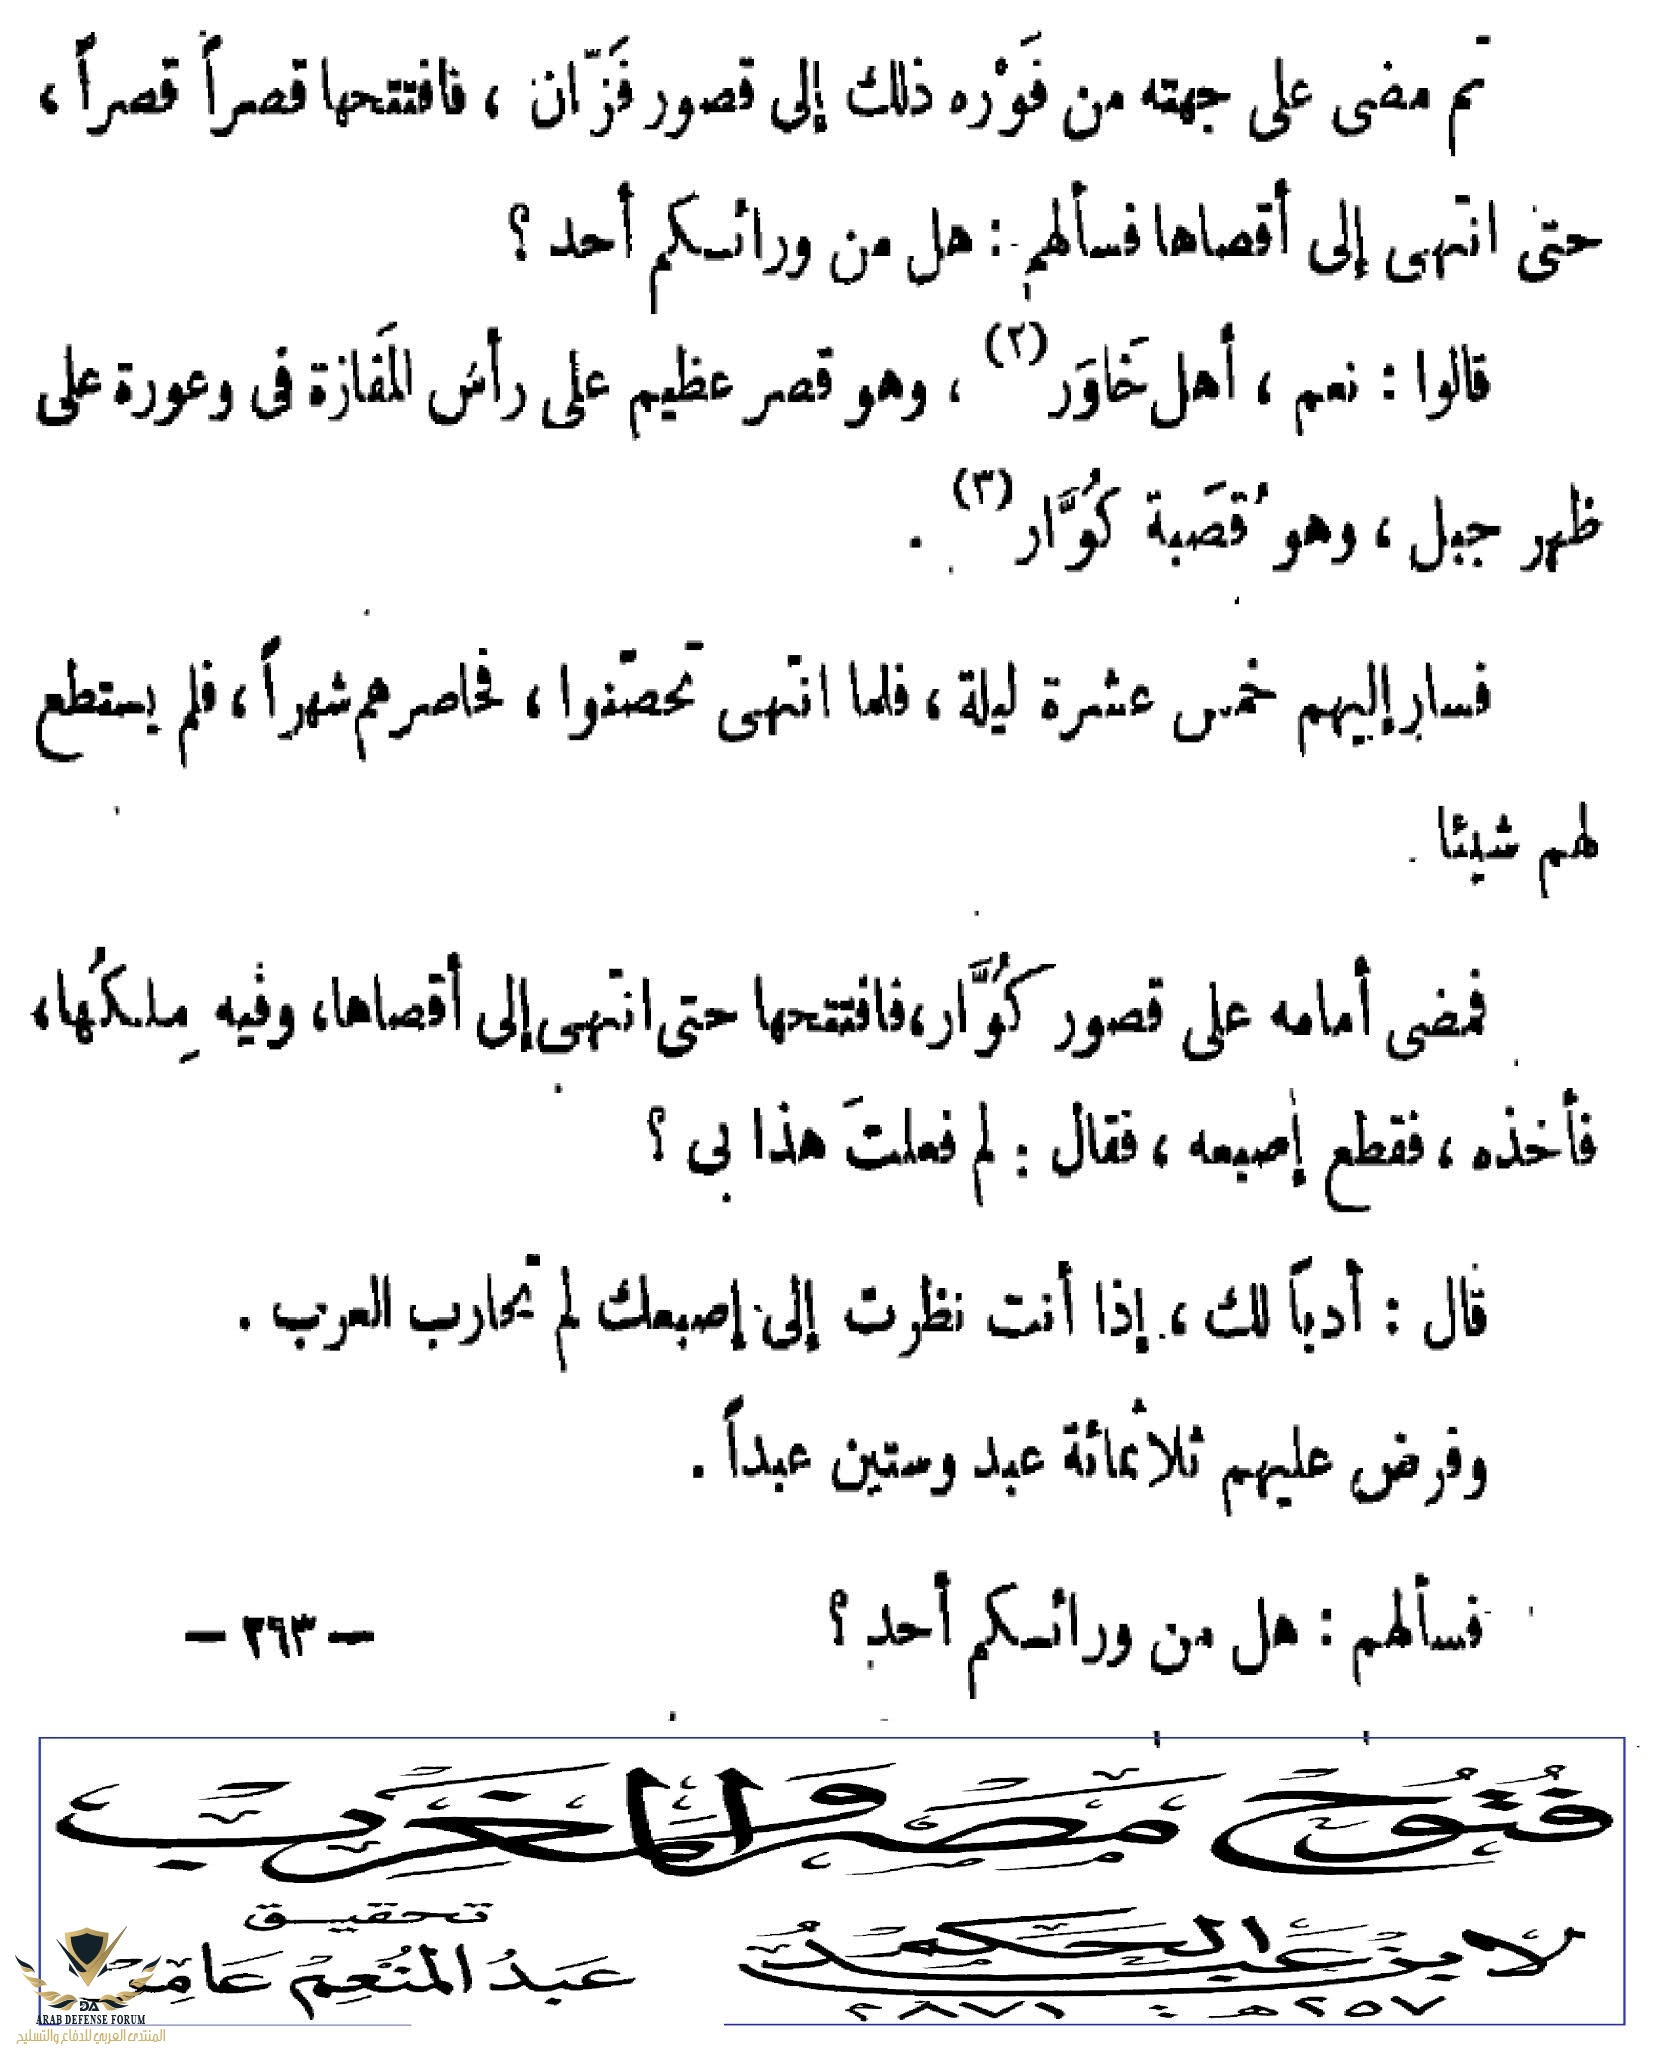 ثم مضى على جهته من فَوْره ذلك إلى قصور فَزّان ، فافتتحها قصراً قصراً ،
حتى انتهى إلى أقصاها فسألهم : هل من ورائكم أحد ؟
قالوا : نعم ، أهل خَاوَر (٢) ، وهو قصر عظيم على رأس المَفازة فى وعورة على
ظهر جبل ، وهو قُصَبة كُوَّار (٣) .
فسار إليهم خمس عشرة ليلة ، فلما انتهى تحصّنوا ، فحاصرهم شهراً ، فلم يستطع
لهم شيئا .
فمضى أمامه على قصور كُوَّار ، فافتتحها حتى انتهى إلى أقصاها ، وفيه مِلكُها ،
فأخذه ، فقطع إصبعه ، فقال : لم فعلتَ هذا بى ؟
قال : أدباً لك ، إذا أنت نظرت إلى إصبعك لم تحارب العرب .
وفرض عليهم ثلاثمائة عبد وستين عبداً .
فسألهم : هل من ورائكم أحد ؟
— ٢٦٣ —
فُتُوح مصر والمغرب
لابن عبد الحكم
٢٥٧ هـ : ٨٧١ م
تحقيق
عَبدُ المُنْعِم عَامِر
ARAB DEFENSE FORUM
المنتدى العربي للدفاع والتسليح